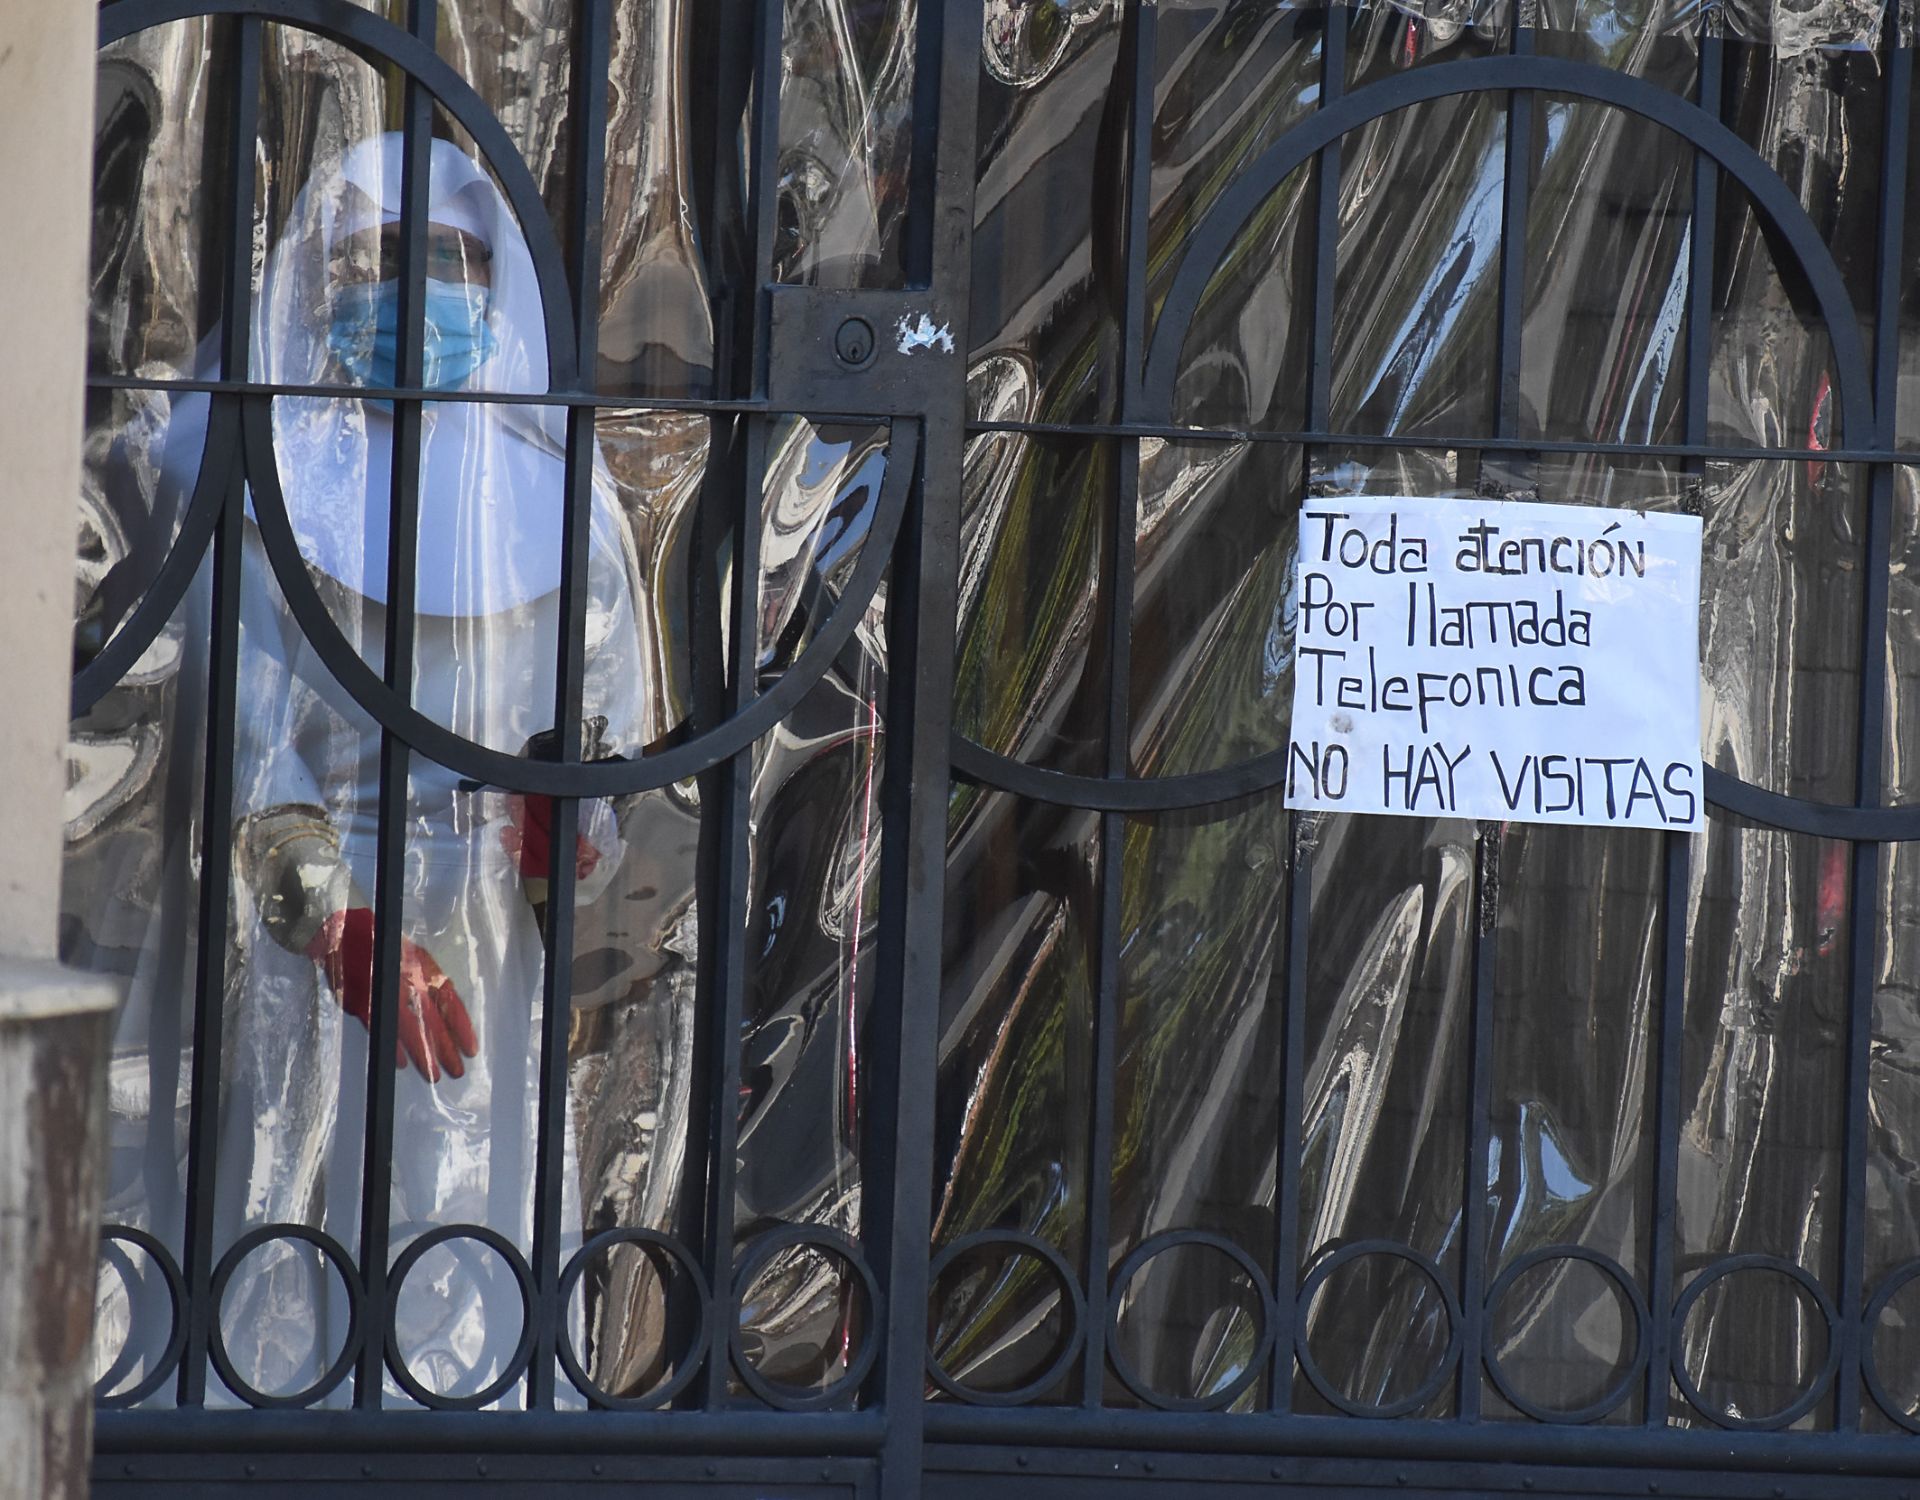 Toda atención
Por llamada
Telefonica
NO HAY VISITAS